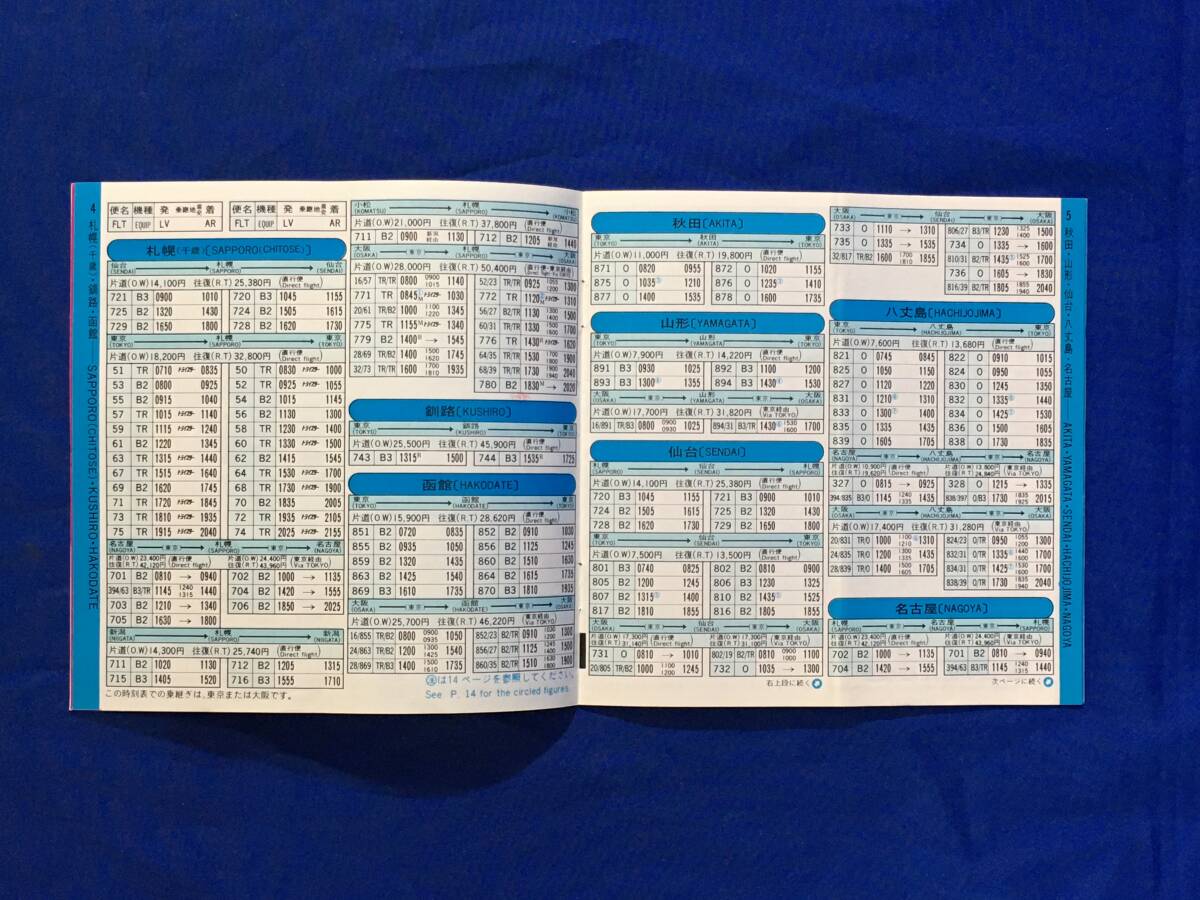 4 札幌(千歳)・釧路・函館 — SAPPORO(CHITOSE)・KUSHIRO・HAKODATE
便名 機種 発 乗継地着発 着 便名 機種 発 乗継地着発 着
FLT EQUIP LV AR FLT EQUIP LV AR
札幌(千歳)[SAPPORO(CHITOSE)]
仙台(SENDAI) 札幌(SAPPORO) 仙台(SENDAI)
片道(O.W)14,100円 往復(R.T)25,380円 (直行便 Direct flight)
721 B3 0900 1010 720 B3 1045 1155
725 B2 1320 1430 724 B2 1505 1615
729 B2 1650 1800 728 B2 1620 1730
東京(TOKYO) 札幌(SAPPORO) 東京(TOKYO)
片道(O.W)18,200円 往復(R.T)32,800円 (直行便 Direct flight)
51 TR 0710 トライスター 0835 50 TR 0830 トライスター 1000
53 B2 0800 0925 52 TR 0925 トライスター 1055
55 B2 0915 1040 54 B2 1015 1145
57 TR 1015 トライスター 1140 56 B2 1130 1300
59 TR 1115 トライスター 1240 58 TR 1230 トライスター 1400
61 B2 1220 1345 60 TR 1330 トライスター 1500
63 TR 1315 トライスター 1440 62 B2 1415 1545
67 TR 1515 トライスター 1640 64 TR 1530 トライスター 1700
69 B2 1620 1745 68 TR 1730 トライスター 1900
71 TR 1720 トライスター 1845 70 B2 1835 2005
73 TR 1810 トライスター 1935 72 TR 1935 トライスター 2105
75 TR 1915 トライスター 2040 74 TR 2025 トライスター 2155
名古屋(NAGOYA) 東京 札幌(SAPPORO) 東京 名古屋(NAGOYA)
片道(O.W)23,400円 往復(R.T)42,120円 (直行便 Direct flight) 片道(O.W)24,400円 往復(R.T)43,960円 (東京経由 Via TOKYO)
701 B2 0810 → 0940 702 B2 1000 → 1135
394/63 B3/TR 1145 1240 1315 1440 704 B2 1420 → 1555
703 B2 1210 → 1340 706 B2 1850 → 2025
705 B2 1630 → 1800
新潟(NIIGATA) 札幌(SAPPORO) 新潟(NIIGATA)
片道(O.W)14,300円 往復(R.T)25,740円 (直行便 Direct flight)
711 B2 1020 1130 712 B2 1205 1315
715 B3 1405 1520 716 B3 1555 1710
この時刻表での乗継ぎは、東京または大阪です。
小松(KOMATSU) 札幌(SAPPORO) 小松(KOMATSU)
片道(O.W)21,000円 往復(R.T)37,800円 (直行便 Direct flight)
711 B2 0900 新潟経由 1130 712 B2 1205 新潟経由 1440
大阪(OSAKA) 東京 札幌(SAPPORO) 東京 大阪(OSAKA)
片道(O.W)28,000円 往復(R.T)50,400円
16/57 TR/TR 0800 0900 1015 1140 52/23 TR/TR 0925 1055 1200 1300
771 TR 0845 トライスター 1030 772 TR 1120 トライスター 1310
20/61 TR/B2 1000 1100 1220 1345 56/27 B2/TR 1130 1300 1400 1500
775 TR 1155 トライスター 1340 60/31 TR/TR 1330 1500 1600 1700
779 B2 1400 → 1545 776 TR 1430 トライスター 1620
28/69 TR/B2 1400 1500 1620 1745 64/35 TR/TR 1530 1700 1800 1900
32/73 TR/TR 1600 1700 1810 1935 68/39 TR/TR 1730 1900 1940 2040
780 B2 1830 → 2020
釧路[KUSHIRO]
東京(TOKYO) 釧路(KUSHIRO) 東京(TOKYO)
片道(O.W)25,500円 往復(R.T)45,900円 (直行便 Direct flight)
743 B3 1315 1500 744 B3 1535 1725
函館[HAKODATE]
東京(TOKYO) 函館(HAKODATE) 東京(TOKYO)
片道(O.W)15,900円 往復(R.T)28,620円 (直行便 Direct flight)
851 B2 0720 0835 852 B2 0910 1030
855 B2 0935 1050 856 B2 1125 1245
859 B2 1240 1355 860 B2 1510 1630
863 B2 1425 1540 864 B2 1615 1735
869 B2 1610 1735 870 B3 1810 1935
大阪(OSAKA) 東京 函館(HAKODATE) 東京 大阪(OSAKA)
片道(O.W)25,700円 往復(R.T)46,220円 (東京経由 Via TOKYO)
16/855 TR/B2 0800 0900 0935 1050 852/23 B2/TR 0910 1030 1200 1300
24/863 TR/B2 1200 1300 1425 1540 856/27 B2/TR 1125 1245 1400 1500
28/869 TR/B3 1400 1500 1610 1735 860/35 B2/TR 1510 1630 1800 1900
は14ページを参照してください。
See P. 14 for the circled figures.
秋田[AKITA]
東京(TOKYO) 秋田(AKITA) 東京(TOKYO)
片道(O.W)11,000円 往復(R.T)19,800円 (直行便 Direct flight)
871 O 0820 0955 872 O 1020 1155
875 O 1035 1210 876 O 1235 1410
877 O 1400 1535 878 O 1600 1735
山形[YAMAGATA]
東京(TOKYO) 山形(YAMAGATA) 東京(TOKYO)
片道(O.W)7,900円 往復(R.T)14,220円 (直行便 Direct flight)
891 B3 0930 1025 892 B3 1100 1200
893 B3 1300 1355 894 B3 1430 1530
大阪(OSAKA) 東京 山形(YAMAGATA) 東京 大阪(OSAKA)
片道(O.W)17,700円 往復(R.T)31,820円 (東京経由 Via TOKYO)
16/891 TR/B3 0800 0900 0930 1025 894/31 B3/TR 1430 1530 1600 1700
仙台[SENDAI]
札幌(SAPPORO) 仙台(SENDAI) 札幌(SAPPORO)
片道(O.W)14,100円 往復(R.T)25,380円 (直行便 Direct flight)
720 B3 1045 1155 721 B3 0900 1010
724 B2 1505 1615 725 B2 1320 1430
728 B2 1620 1730 729 B2 1650 1800
東京(TOKYO) 仙台(SENDAI) 東京(TOKYO)
片道(O.W)7,500円 往復(R.T)13,500円 (直行便 Direct flight)
801 B3 0740 0825 802 B2 0810 0900
805 B2 1200 1245 806 B3 1230 1325
807 B2 1315 1400 810 B2 1435 1525
817 B2 1810 1855 816 B2 1805 1855
大阪(OSAKA) 東京 仙台(SENDAI) 東京 大阪(OSAKA)
片道(O.W)17,300円 往復(R.T)31,140円 (直行便 Direct flight) 片道(O.W)17,300円 往復(R.T)31,100円 (東京経由 Via TOKYO)
731 O 0810 → 1010 802/19 B2/TR 0810 0900 1000 1100
20/805 TR/B2 1000 1100 1200 1245 732 O 1035 → 1300
右上段に続く
大阪(OSAKA) 東京 仙台(SENDAI) 東京 大阪(OSAKA)
733 O 1110 → 1310 806/27 B3/TR 1230 1325 1400 1500
735 O 1335 → 1535 734 O 1335 → 1600
32/817 TR/B2 1600 1700 1810 1855 810/31 B2/TR 1435 1525 1600 1700
736 O 1605 → 1830
816/39 B2/TR 1805 1855 1940 2040
八丈島[HACHIJOJIMA]
東京(TOKYO) 八丈島(HACHIJOJIMA) 東京(TOKYO)
片道(O.W)7,600円 往復(R.T)13,680円 (直行便 Direct flight)
821 O 0745 0845 822 O 0910 1015
825 O 1050 1150 824 O 0950 1055
827 O 1120 1220 830 O 1245 1350
831 O 1210 1310 832 O 1335 1440
833 O 1300 1400 834 O 1425 1530
835 O 1335 1435 836 O 1500 1605
839 O 1605 1705 838 O 1730 1835
名古屋(NAGOYA) 東京 八丈島(HACHIJOJIMA) 東京 名古屋(NAGOYA)
片道(O.W)10,900円 往復(R.T)19,620円 (直行便 Direct flight) 片道(O.W)13,800円 往復(R.T)24,840円 (東京経由 Via TOKYO)
327 O 0815 → 0925 328 O 1215 → 1335
394/835 B3/O 1145 1240 1335 1435 838/397 O/B3 1730 1835 1925 2015
大阪(OSAKA) 東京 八丈島(HACHIJOJIMA) 東京 大阪(OSAKA)
片道(O.W)17,400円 往復(R.T)31,280円 (東京経由 Via TOKYO)
20/831 TR/O 1000 1100 1210 1310 824/23 O/TR 0950 1055 1200 1300
24/835 TR/O 1200 1300 1335 1435 832/31 O/TR 1335 1440 1600 1700
28/839 TR/O 1400 1500 1605 1705 834/31 O/TR 1425 1530 1600 1700
838/39 O/TR 1730 1835 1940 2040
名古屋[NAGOYA]
札幌(SAPPORO) 東京 名古屋(NAGOYA) 東京 札幌(SAPPORO)
片道(O.W)23,400円 往復(R.T)42,120円 (直行便 Direct flight) 片道(O.W)24,400円 往復(R.T)43,960円 (東京経由 Via TOKYO)
702 B2 1000 → 1135 701 B2 0810 → 0940
704 B2 1420 → 1555 394/63 B3/TR 1145 1240 1315 1440
次ページに続く
5 秋田・山形・仙台・八丈島・名古屋 — AKITA・YAMAGATA・SENDAI・HACHIJOJIMA・NAGOYA